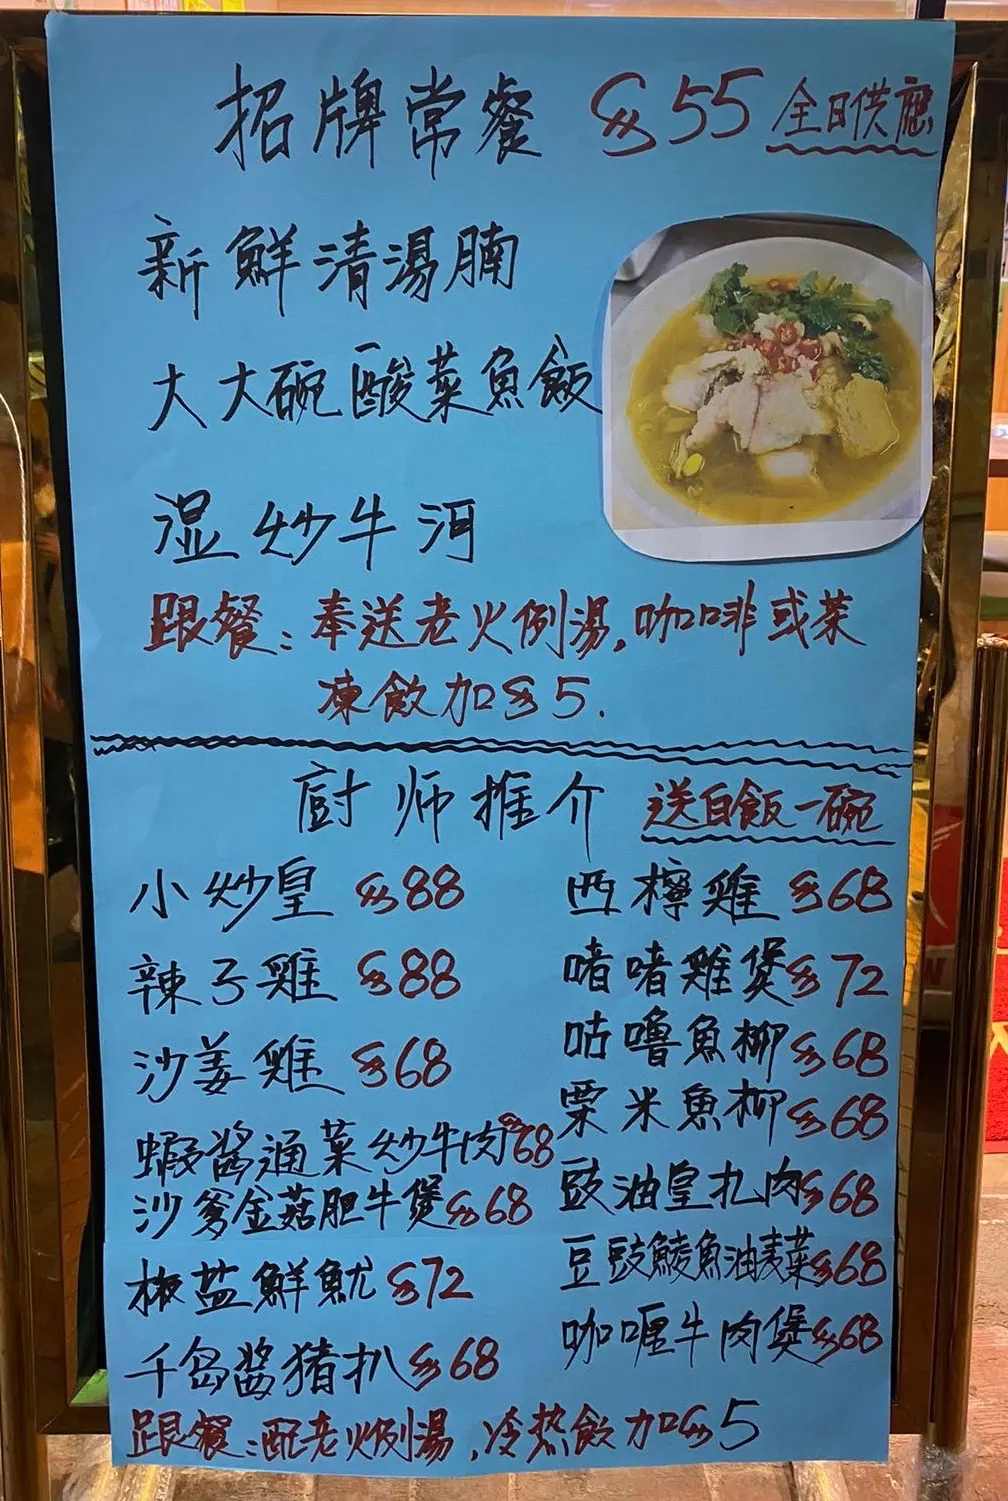 招牌常餐 $55 全日供應
新鮮清湯腩
大大碗酸菜魚飯
湿炒牛河
跟餐：奉送老火例湯，咖啡或茶
凍飲加$5.
廚师推介 送白飯一碗
小炒皇 $88
辣子雞 $88
沙姜雞 $68
蝦酱通菜炒牛肉$68
沙爹金菇肥牛煲$68
椒盐鮮魷$72
千岛酱猪扒$68
西檸雞$68
啫啫雞煲$72
咕噜魚柳$68
粟米魚柳$68
豉油皇扎肉$68
豆豉鯪魚油麦菜$68
咖喱牛肉煲$68
跟餐：配老火例湯，冷热飲加$5